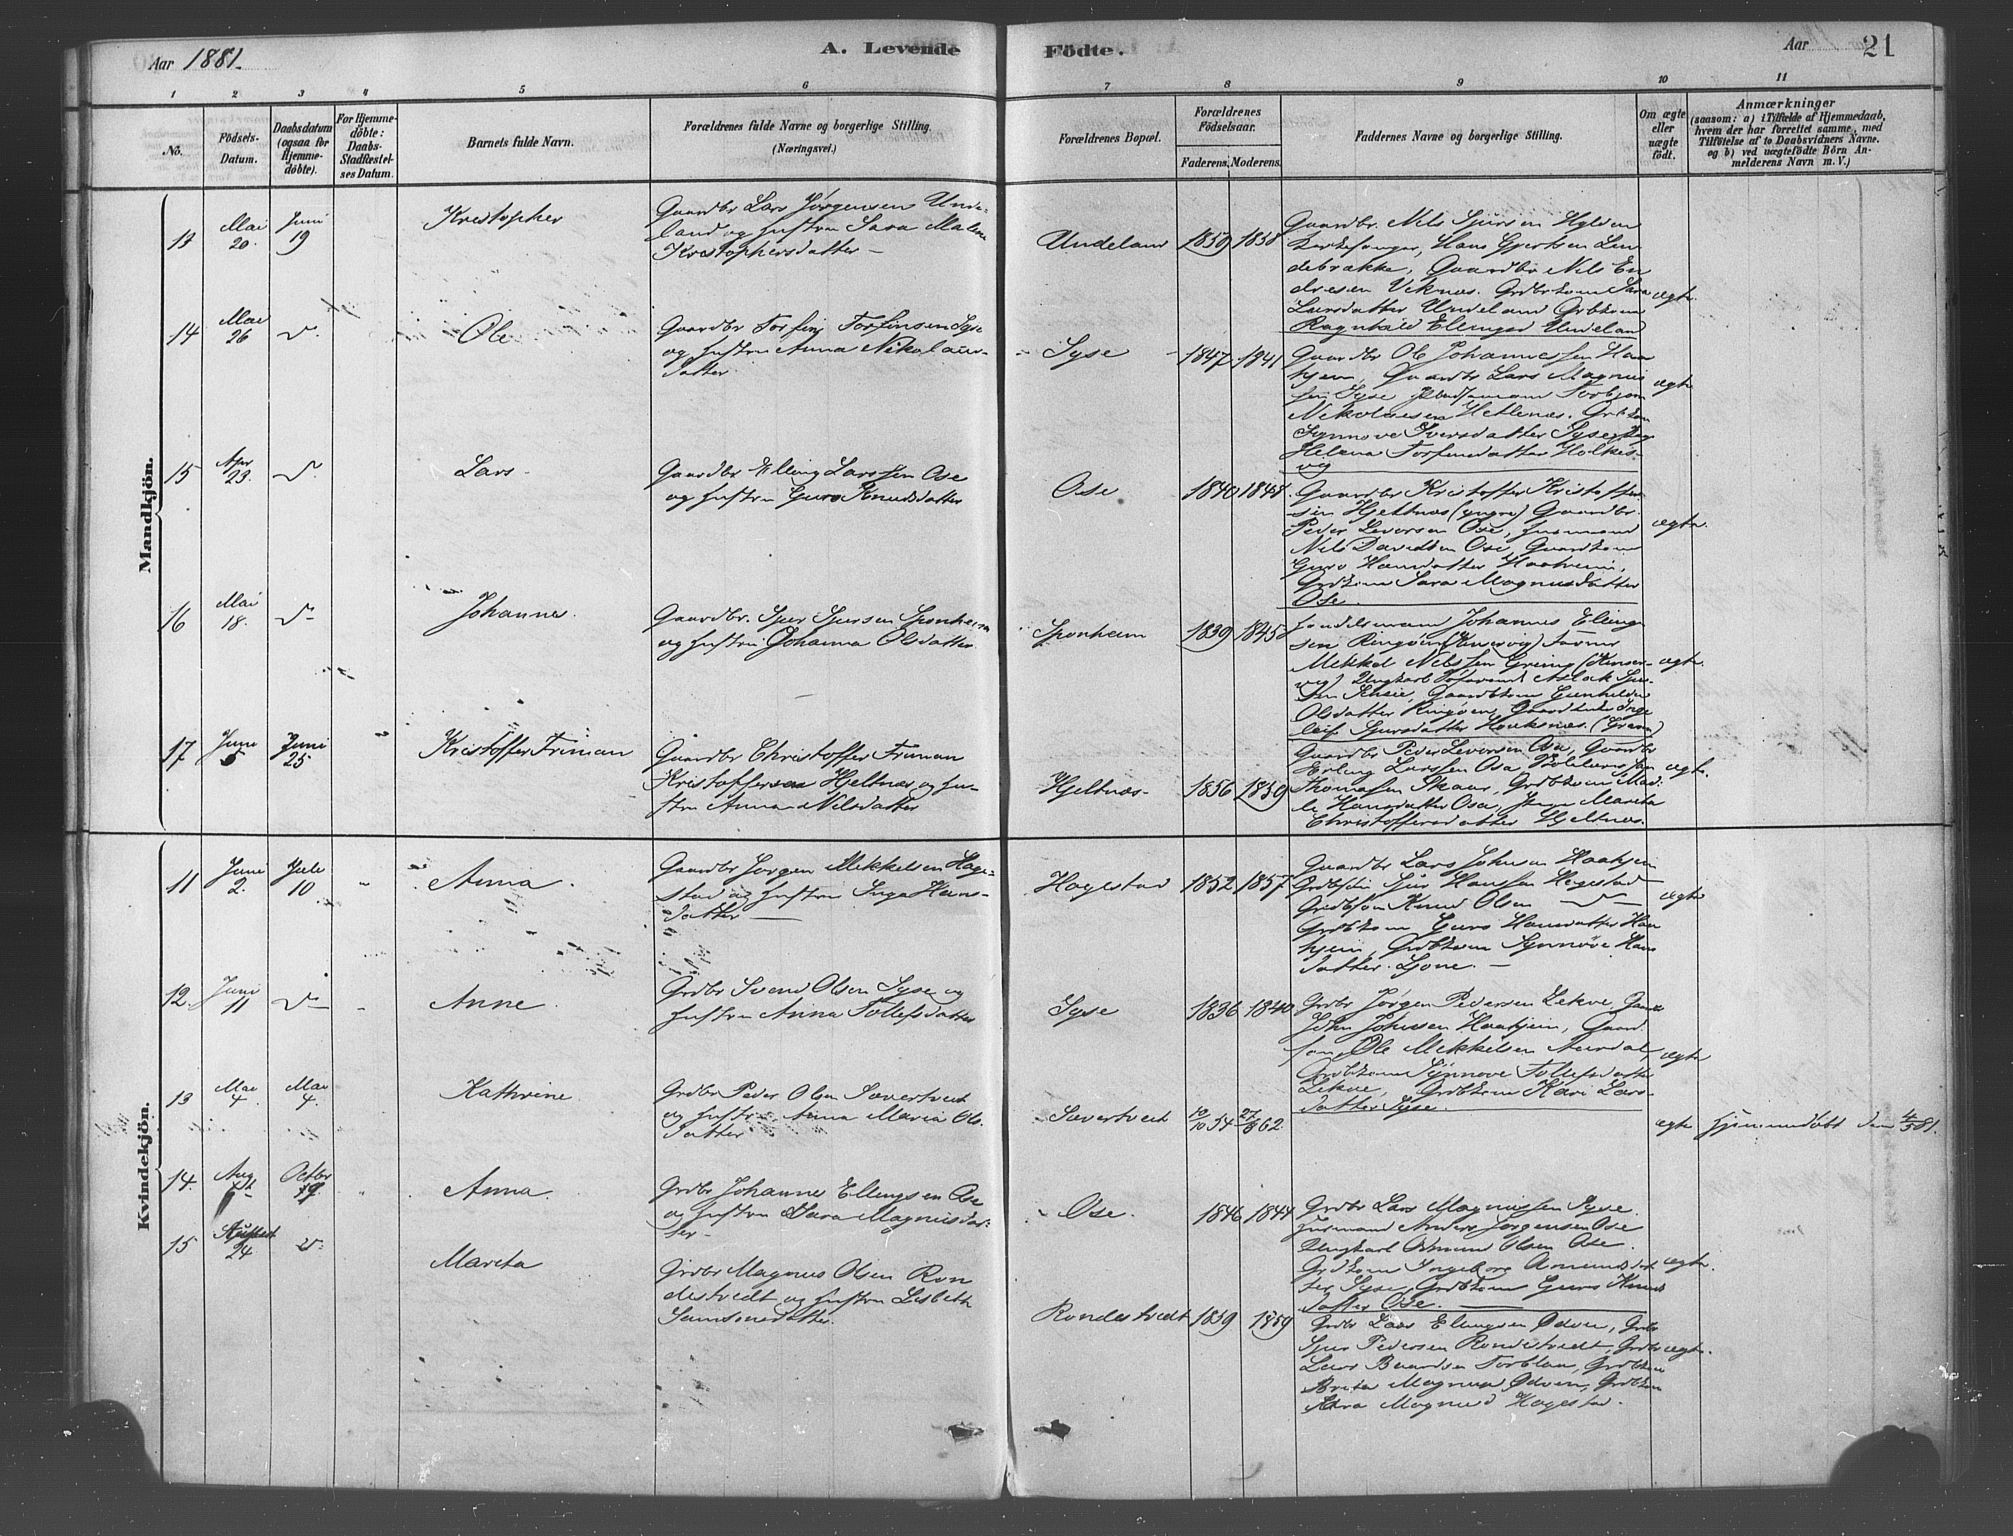 Aar 1881.
A. Levende
Födte.
Aar
21
1 2 3 4 5 6 7 8 9 10 11
No.
Födsels-Datum.
Daabsdatum (ogsaa for Hjemmedöbte).
For Hjemmedöbte: Daabs-Stadfæstelses Datum.
Barnets fulde Navn.
Forældrenes fulde Navne og borgerlige Stilling. (Næringsvei.)
Forældrenes Bopæl.
Forældrenes Födselsaar.
Faderens. Moderens.
Faddernes Navne og borgerlige Stilling.
Om ægte eller uægte födt.
Anmærkninger (saasom: a) i Tilfælde af Hjemmedaab, hvem der har forrettet samme, med Tilföielse af to Daabsvidners Navne. og b) ved uægtefödte Börn Anmelderens Navn m. V.)
Mandkjön.
13 Mai 20. Juni 19 Kristopher
Gaardbr Lars Jørgensen Unde-
land og Hustru Sara Malene
Kristophersdatter –
Undeland 1859 1858
Gaardbr. Nils Sjursen Hylden
Kirkesanger, Hans Gjertsen Lin-
debrække, Gaardbr Nils En-
dresen Viknæs. Grdbrkone Sara
Larsdatter Undeland Grbkone
Ragnhild Elingsd Undeland
ægte
14 Mai 26 Do Ole
Gaardbr Torfin Torfinsen Syse
og Hustru Anna Nikolaus-
datter
Syse 1847 1841
Gaardbr Ole Johannessen Haa-
hjem, Gaardbr Lars Magnus-
sen Syse Torbjørn
Nikolausen Hetlenæs. Grbkone
Synnove Iversdatter Syse
Helena Torfinsdatter Holkes-
vig
ægte
15 Apr 23. Do Lars.
Gaardbr Elling Larssen Ose
og Hustru Guro Knudsdatter
Ose 1840 1847
Gaardbr Kristoffer Kristoffer-
sen Hjeltnæs (yngre) Gaardbr.
Peder Leversen Ose, Husmand
Nils Davidsen Ose, Gaardkone
Guro Hansdatter Haaheim,
Grdkone Sara Magnusdatter
Ose
ægte.
16 Mai 18. Do Johannes.
Gaardbr. Sjur Sjursen Sponheim
og Hustru Johanna Olsdatter
Sponheim 1839 1845
Handelsmand Johannes Elling-
sen Ringøen (Kinservig)
Mikkel Nilssen Gring (Kinser-
vig) Ungkarl Aslak Sjur-
sen Gaardbkone Gunhilda
Olsdatter Ringøen, Inge-
leif Sjursdatter Hauksnæs. (Graven)
ægte.
17 Juni 5 Juni 25 Kristoffer Friman
Gaardbr Christoffer Friman
Kristoffersen Hjeltnæs og Hu-
stru Anna Nilsdatter
Hjeltnæs 1856 1859
Gaardbr Peder Leversen Osa, Gaardbr
Erling Larssen Osa,
Thomassen Skaar, Grdbrkone
Hansdatter Osa, Pige Marita
Christoffersdatter Hjeltnæs.
ægte.
Kvindekjön.
11 Juni 2. Juli 10 Anna.
Gaardbr Jørgen Mikkelsen Hage-
stad og Hustru Inga Hans-
datter –
Hagestad 1852 1857
Gaardbr Lars Johnsen Haahjem
Grdbrsøn Sjur Hansen Hagestad
Grdbrsøn Knud Olsen Do
Grdbkone Guro Hansdatter Haa-
hjem, Grdbkone Synnøve Hans-
datter Ljone. –
ægte
12. Juni 11 Do Anne.
Grdbr Svend Olsen Syse og
Hustru Anna Tollefsdatter
Syse 1836 1840
Grdbr Jørgen Pedersen Lekve
John Johnsen Haahjem,
Ole Mikkelsen Aurdal,
Grdbkone Synnove Tollefsdatter
Lekve, Grdbkone Kari Lars-
datter Syse.
ægte
13 Mai 4. Mai 4. Kathrine
Grdbr Peder Olsen Sævertveit
og Hustru Anna Maria Ols-
datter
Sævertveit 10/10 54 27/6 62.
ægte Hjemmedøbt den 4/5 81.
14. Aug Octbr 19 Anna.
Grdbr Johannes Ellingsen Ose
og Hustru Sara Magnusdat-
ter
Ose. 1846 1844
Grdbr Lars Magnussen Syse.
Husmand Anders Jørgensen Ose
Ungkarl Olsen Ose.
Grdkone Ingeborg Amundsdat-
ter Syse, Grdbkone Guro Knuds-
datter Ose.
ægte.
15 August 24 Do Mareta
Grdbr Magnus Olsen Ron-
destvedt og Hustru Lisbeth
Samsonsdatter.
Rondestvedt 1859 1859
Grdbr Lars Elingsen Ødven, Grdbr
Sjur Pedersen Rondestvedt, Grdbr
Lars Baardsen Torblaa, Grdbkone
Brita Magnusd Ødven, Grdbkone
Magnusd Hagestad.
ægte.